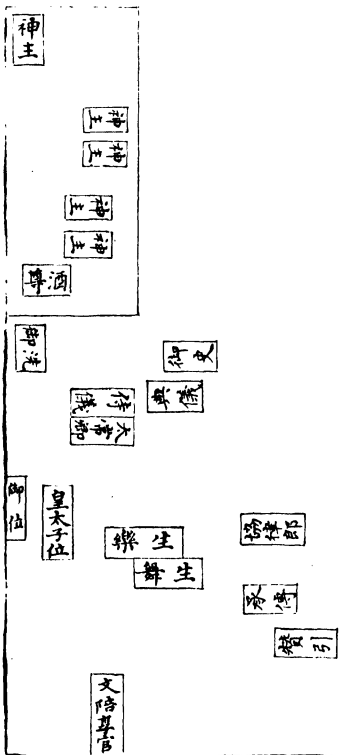 神主
神主
神主
神主
神主
酒尊
御洗
御史
典儀
侍儀
太常卿
御位
皇太子位
樂生
舞生
協律郎
承傳
贊引
文陪祭官